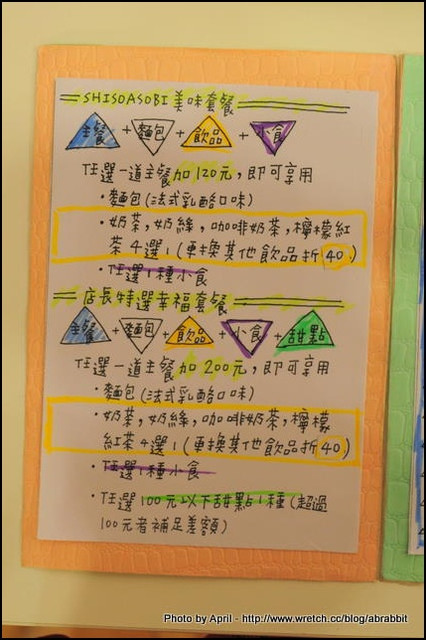 SHISOASOBI 美味套餐
主餐 + 麵包 + 飲品 + 小食
任選一道主餐加120元，即可享用
・麵包(法式乳酪口味)
・奶茶，奶綠，咖啡奶茶，檸檬紅
茶4選1(更換其他飲品折40)
・任選1種小食
店長特選幸福套餐
主餐 + 麵包 + 飲品 + 小食 + 甜點
任選一道主餐加200元，即可享用
・麵包(法式乳酪口味)
・奶茶，奶綠，咖啡奶茶，檸檬
紅茶4選1(更換其他飲品折40)
・任選1種小食
・任選100元以下甜點1種(超過
100元者補足差額)
Photo by April - http://www.wretch.cc/blog/abrabbit